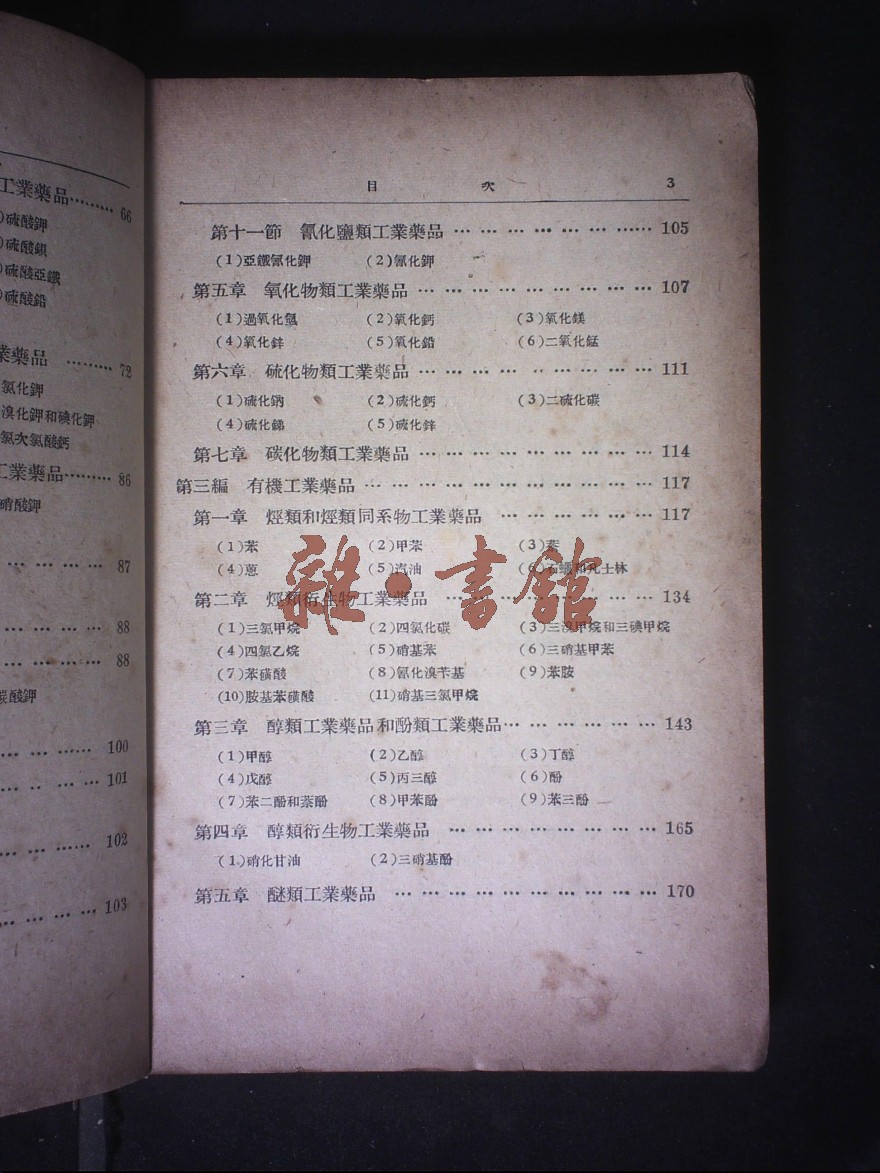 工業藥品……… 66
硫酸鉀
硫酸鋇
硫酸亞鐵
硫酸鉛
業藥品 …… 72
氯化鉀
溴化鉀和碘化鉀
氯次氯酸鈣
工業藥品……… 86
硝酸鉀
87
88
88
碳酸鉀
100
101
102
103
目 次 3
第十一節 氰化鹽類工業藥品 … … … … … … …… 105
(1)亞鐵氰化鉀 (2)氰化鉀
第五章 氧化物類工業藥品 … … … … … … … … … 107
(1)過氧化氫 (2)氧化鈣 (3)氧化鎂
(4)氧化鋅 (5)氧化鉛 (6)二氧化錳
第六章 硫化物類工業藥品 … … … … … … … … … 111
(1)硫化鈉 (2)硫化鈣 (3)二硫化碳
(4)硫化銻 (5)硫化鋅
第七章 碳化物類工業藥品 … … … … … … … … … 114
第三編 有機工業藥品 … … … … … … … … … … … 117
第一章 烴類和烴類同系物工業藥品 … … … … … … 117
(1)苯 (2)甲苯 (3)萘
(4)蒽 (5)汽油 (6)石蠟和凡士林
第二章 烴類衍生物工業藥品 … … … … … … … … 134
(1)三氯甲烷 (2)四氯化碳 (3)三溴甲烷和三碘甲烷
(4)四氯乙烷 (5)硝基苯 (6)三硝基甲苯
(7)苯磺酸 (8)氰化溴苄基 (9)苯胺
(10)胺基苯磺酸 (11)硝基三氯甲烷
第三章 醇類工業藥品和酚類工業藥品… … … … … … 143
(1)甲醇 (2)乙醇 (3)丁醇
(4)戊醇 (5)丙三醇 (6)酚
(7)苯二酚和萘酚 (8)甲苯酚 (9)苯三酚
第四章 醇類衍生物工業藥品 … … … … … … … … 165
(1)硝化甘油 (2)三硝基酚
第五章 醚類工業藥品 … … … … … … … … … … 170
雜·書館